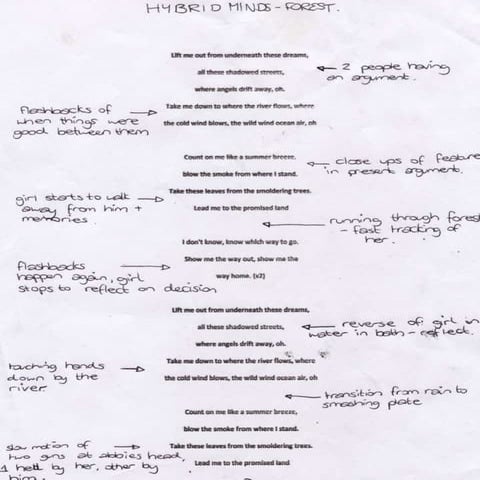 HYBRID MINDS - FOREST.
Lift me out from underneath these dreams,
all these shadowed streets,
where angels drift away, oh.
← 2 people having
an argument.
flashbacks of →
when things were
good between them
Take me down to where the river flows, where
the cold wind blows, the wild wind ocean air, oh
Count on me like a summer breeze,
blow the smoke from where I stand.
← close ups of feature
in present argument.
girl starts to walk →
away from him +
memories.
Take these leaves from the smoldering trees.
Lead me to the promised land
← running through forest
- fast tracking of
her.
I don't know, know which way to go.
Show me the way out, show me the
way home. (x2)
flashbacks →
happen again, girl
stops to reflect on decision
Lift me out from underneath these dreams,
all these shadowed streets,
where angels drift away, oh.
← reverse of girl in
water in bath - reflect.
touching hands →
down by the
river
Take me down to where the river flows, where
the cold wind blows, the wild wind ocean air, oh
← transition from rain to
smashing plate
Count on me like a summer breeze,
blow the smoke from where I stand.
slow motion of →
two guns at abbies head,
1 held by her, other by
him.
Take these leaves from the smoldering trees.
Lead me to the promised land